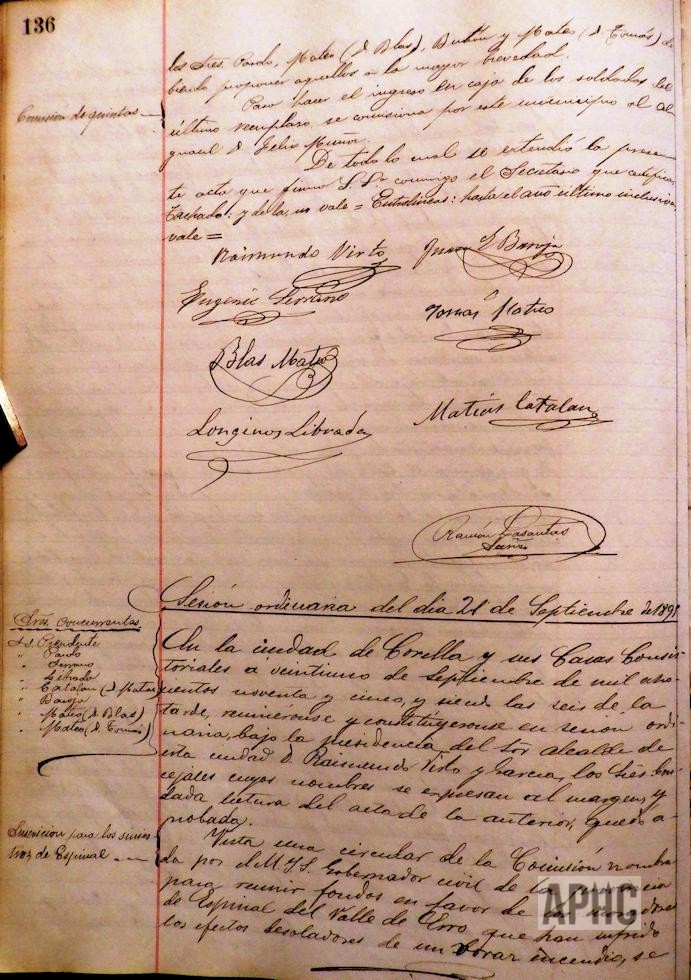 136
los Sres. Pardo, Mateo (d. Blas), Butin y Mateo (d. Tomás) de
biendo proponer aquellos a la mayor brevedad.
Comisión de quintas
Para hacer el ingreso en caja de los soldados del
último remplazo se comisiona por este municipio al al
guacil d. Felix Muñoz.
De todo lo cual se estendió la presen
te acta que firma S. Sª conmigo el Secretario que certifico.
Tachado: y de la, no vale = Entrelineas: hasta el año último inclusive,
vale =
Raimundo Virto
Juan Baroja
Eugenio Serrano
Tomás Mateo
Blas Mateo
Matías Catalan
Longinos Librada
Ramón Lasantas
Sesión ordinaria del dia 21 de Septiembre de 1895
Sres. Concurrentes
Sr. Presidente
" Pardo
" Serrano
" Librada
" Catalan (d. Matías
" Baroja
" Mateo (d. Blas)
" Mateo (d. Tomás)
En la ciudad de Corella y sus Casas Consis
toriales a veintiuno de septiembre de mil ocho
cientos noventa y cinco, y siendo las seis de la
tarde, reuniéronse y constituyeronse en sesion ordi
naria, bajo la presidencia del Sor alcalde de
esta ciudad D. Raimundo Virto y Garcia, los Sres con
cejales cuyos nombres se espresan al margen, y
dada lectura del acta de la anterior, quedó a-
probada.
Suscricion para los sinies
tros de Espinal
Vista una circular de la Comisión nombra
da por el M. I. S. Gobernador civil de la provincia
para reunir fondos en favor de los moradores
de Espinal del Valle de Erro que han sufrido
los efectos desoladores de un voraz incendio, se
APHC